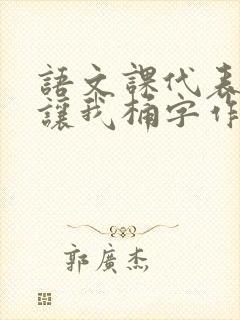 語文課代表
讓我桶字作
郭廣杰